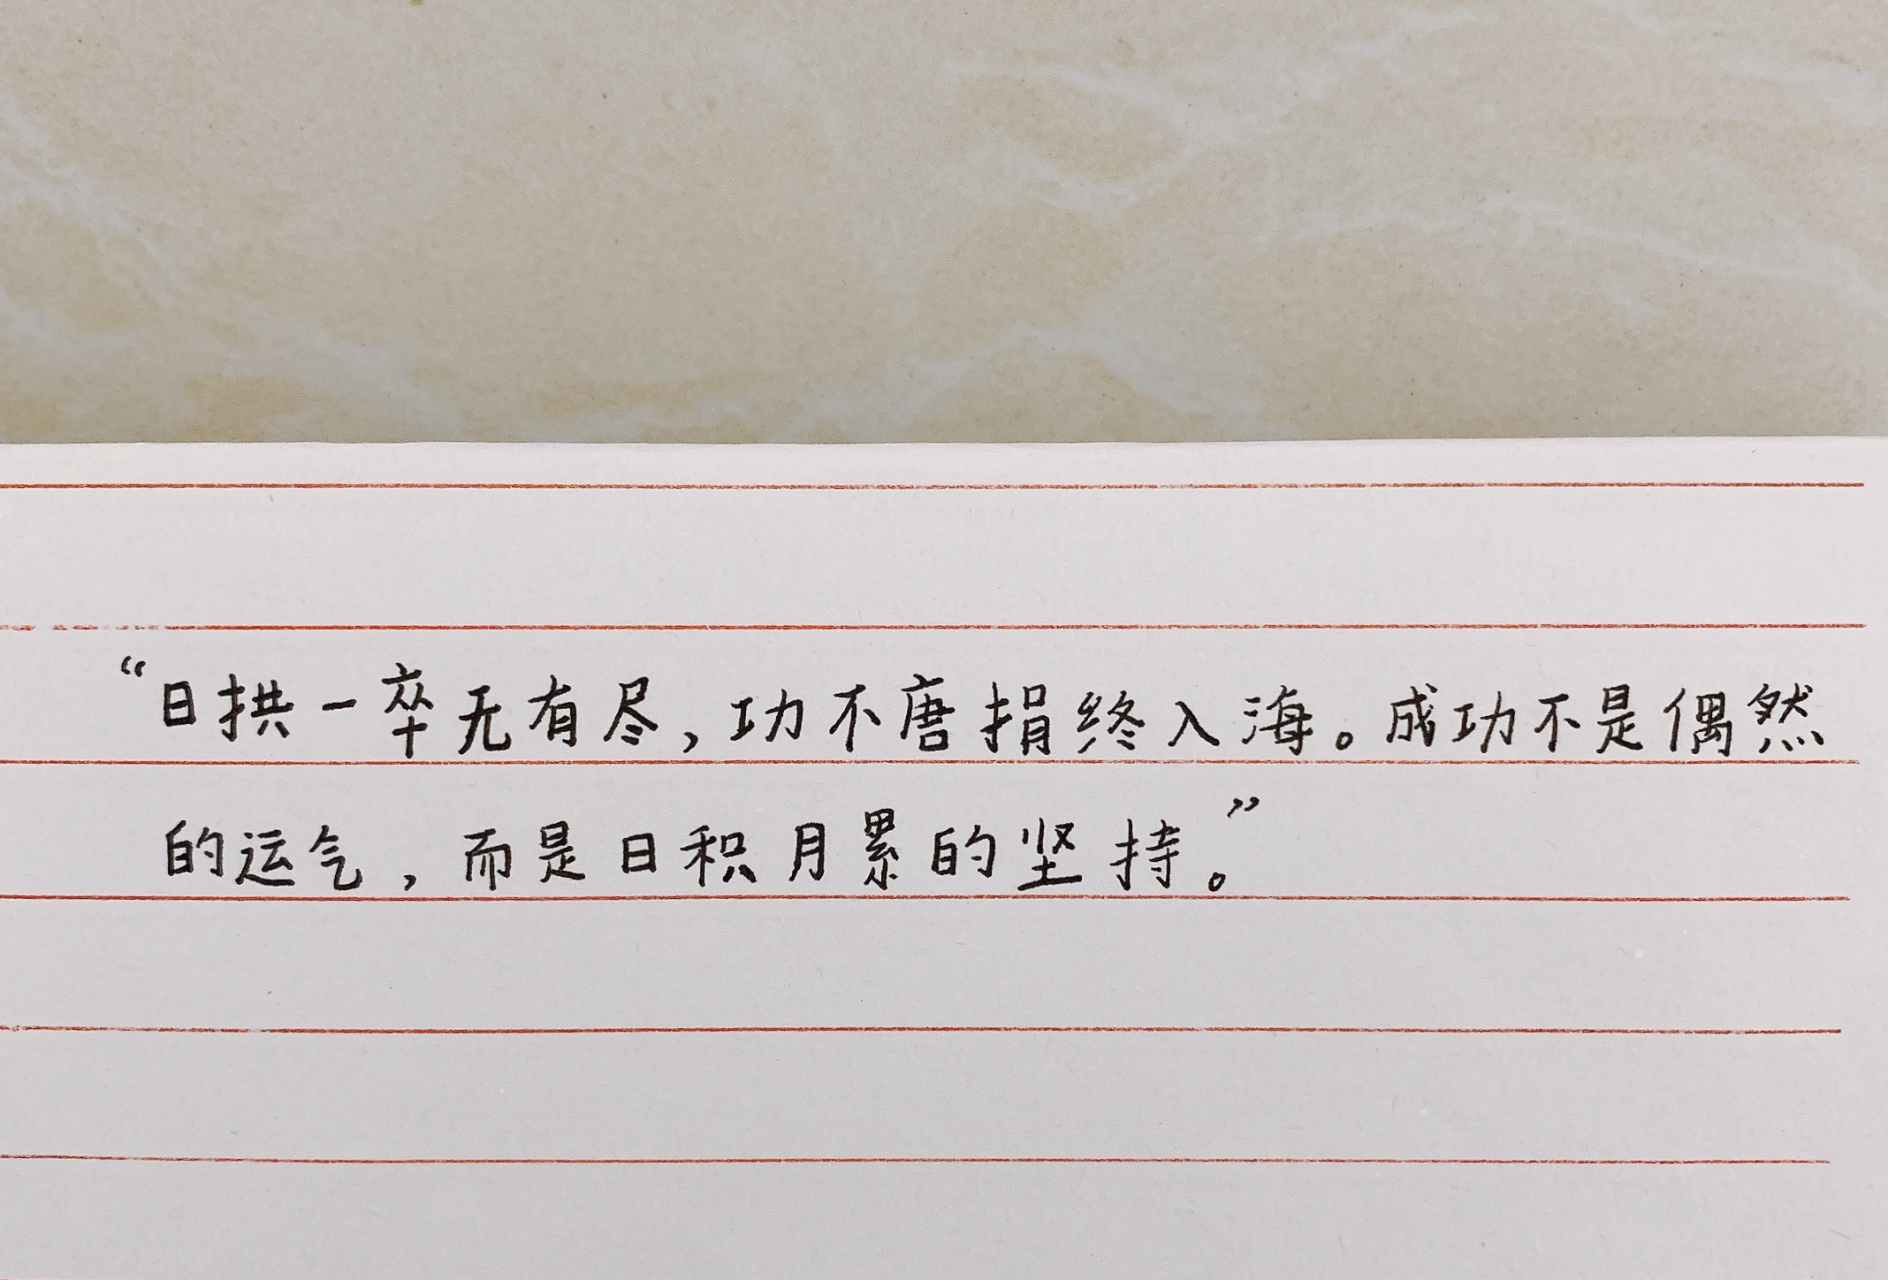 “日拱一卒无有尽，功不唐捐终入海。成功不是偶然
的运气，而是日积月累的坚持。”